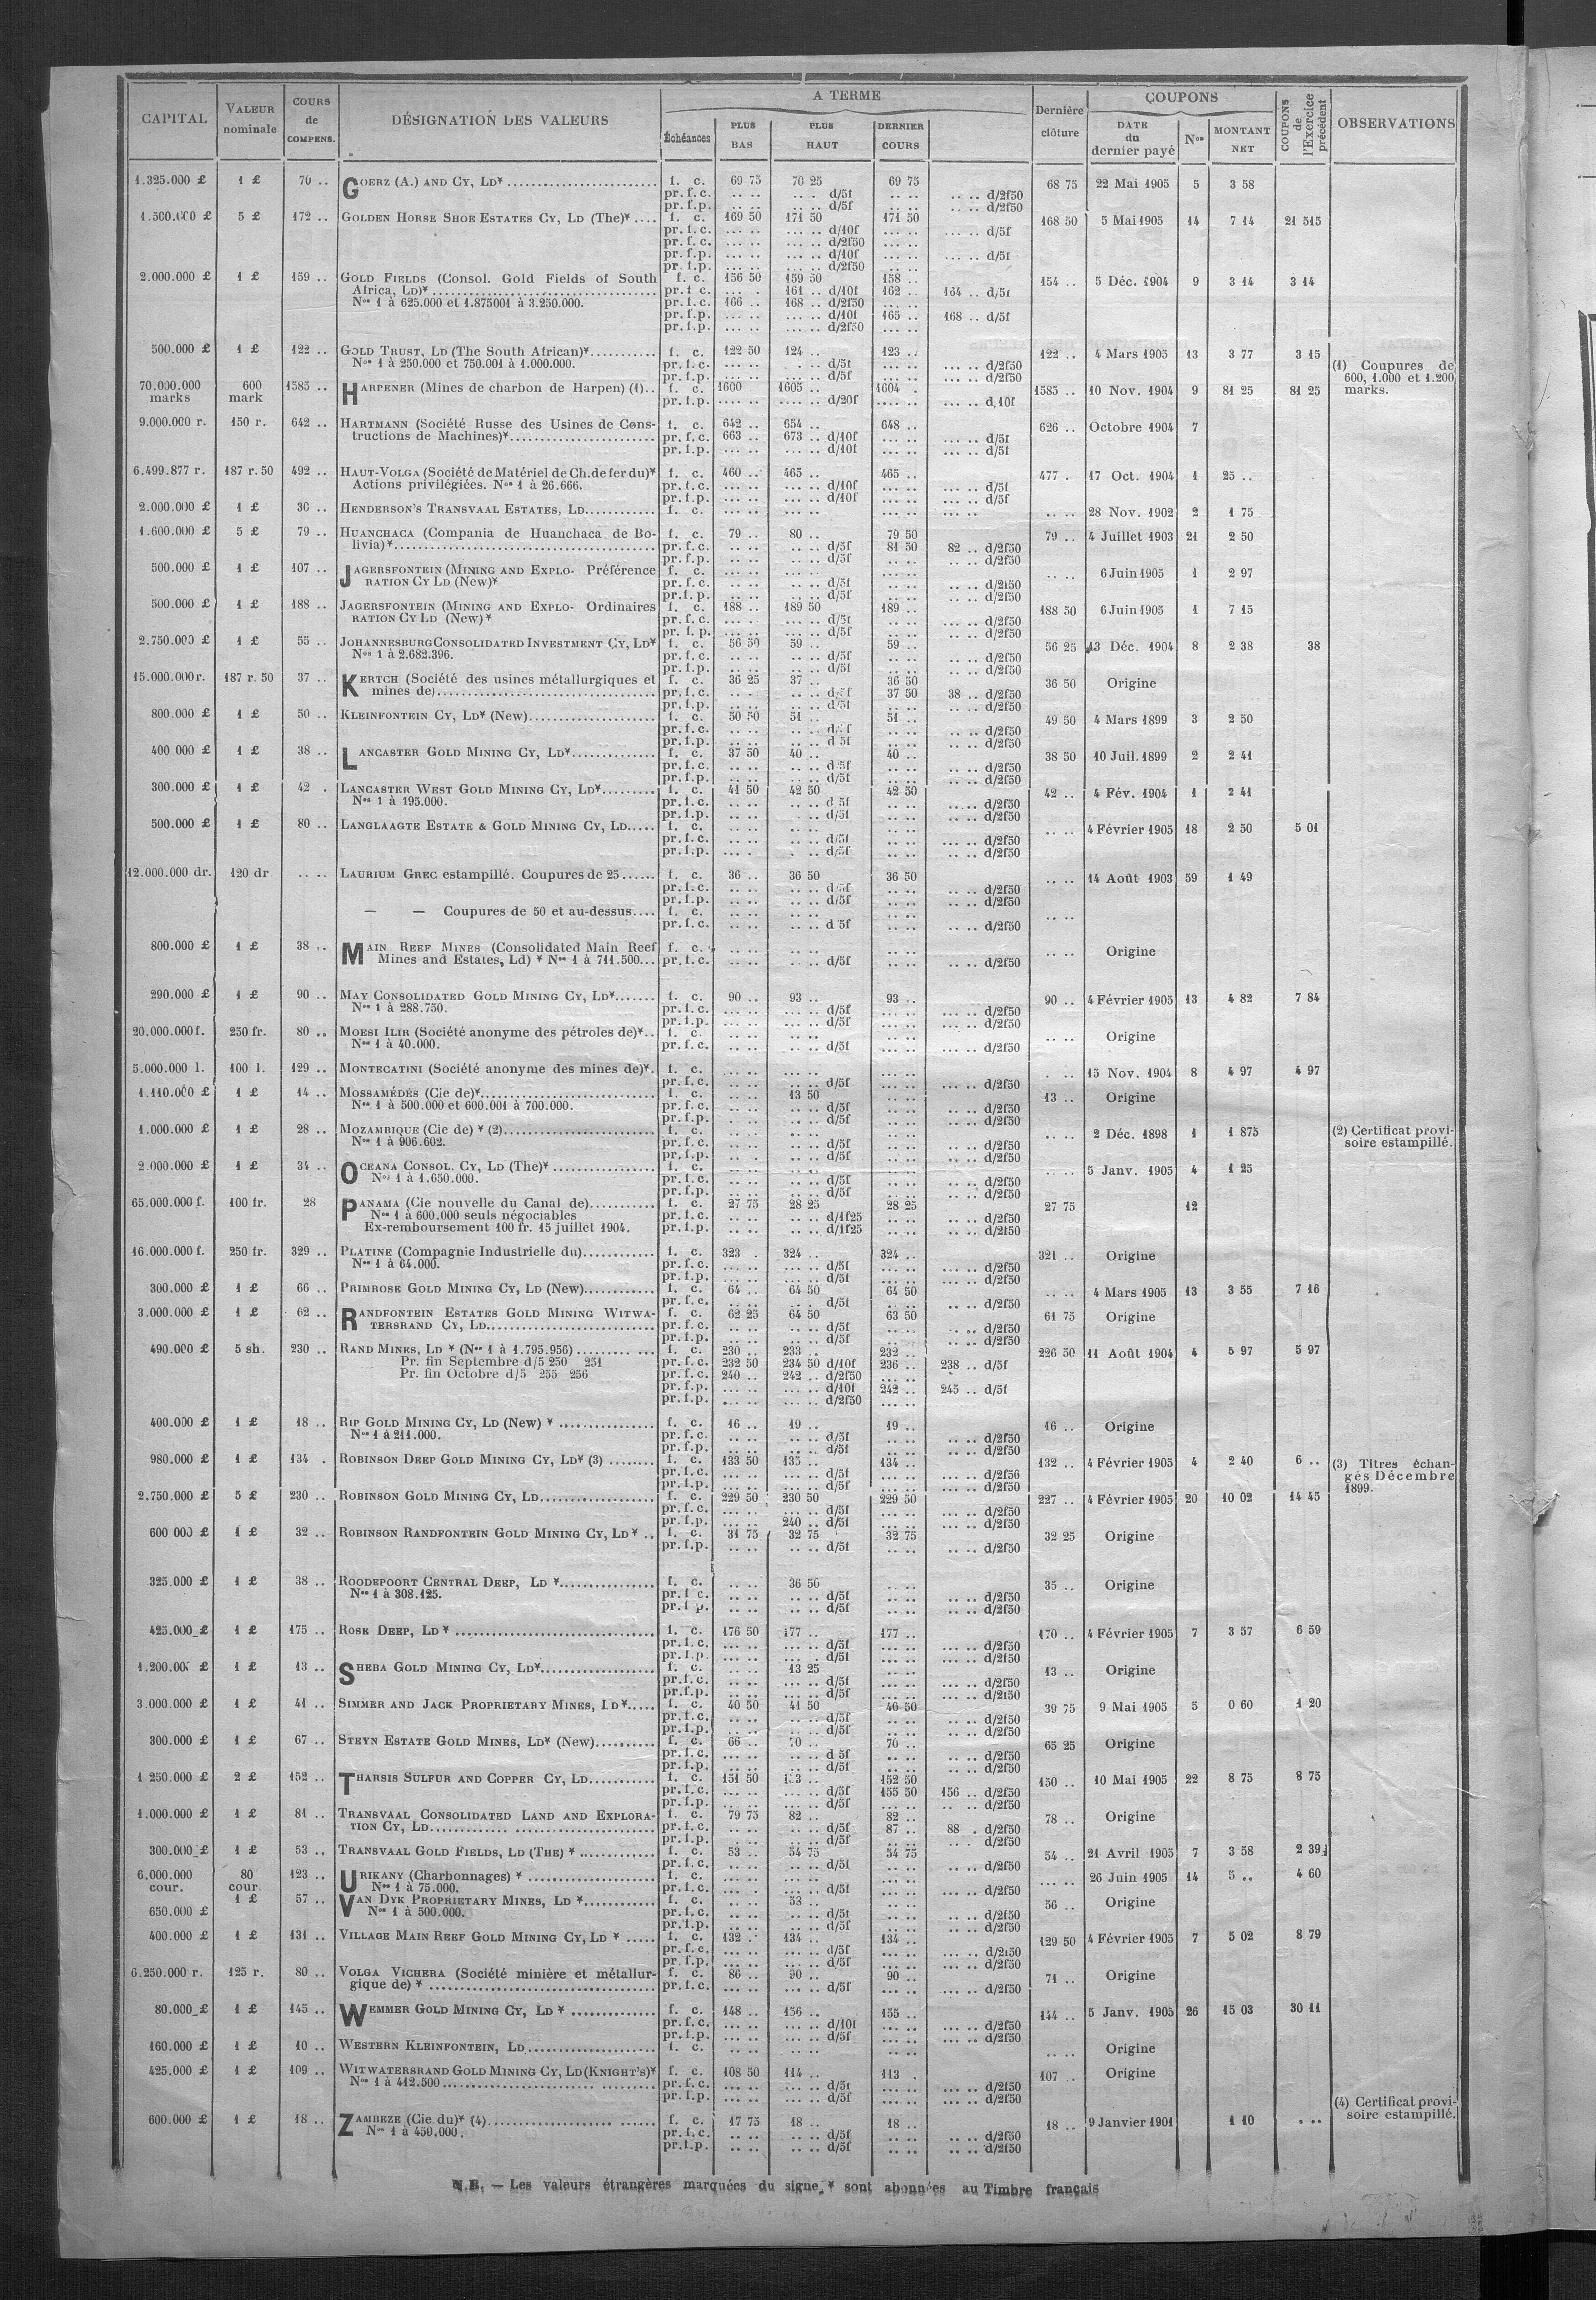 CAPITAL VALEUR nominale COURS de COMPENS. DÉSIGNATION DES VALEURS A TERME Dernière clôture COUPONS COUPONS de l'Exercice précédent OBSERVATIONS
Échéances PLUS BAS PLUS HAUT DERNIER COURS DATE du dernier payé Nos MONTANT NET
1.325.000 £ 1 £ 70 .. GOERZ (A.) AND CY, LD* f. c. 69 75 70 25 69 75 68 75 22 Mai 1905 5 3 58
pr. f. c. .. .. .. . d/5f .. .. .. .. d/2f50
pr. f. p. .. .. .. .. d/5f .. .. .. .. d/2f50
1.500.000 £ 5 £ 172 .. GOLDEN HORSE SHOE ESTATES CY, LD (The)* .... f. c. 169 50 171 50 171 50 168 50 5 Mai 1905 14 7 14 21 515
pr. f. c. ... .. ... .. d/10f ... .. ... .. d/5f
pr. f. c. ... .. ... .. d/2f50 ... ..
pr. f. p. ... .. ... .. d/10f ... .. ... .. d/5f
pr. f. p. ... .. ... .. d/2f50 .. ..
2.000.000 £ 1 £ 159 .. GOLD FIELDS (Consol. Gold Fields of South f. c. 156 50 159 50 158 .. 154 .. 5 Déc. 1904 9 3 14 3 14
Africa, LD)* pr. f. c. ... . 161 .. d/10f 162 .. 164 .. d/5f
Nos 1 à 625.000 et 1.875001 à 3.250.000. pr. f. c. 166 .. 168 .. d/2f50 ... ..
pr. f. p. ... .. ... .. d/10f 165 .. 168 .. d/5f
pr. f. p. ... .. ... .. d/2f50 ... ..
500.000 £ 1 £ 122 .. GOLD TRUST, LD (The South African)* f. c. 122 50 124 .. 123 .. 122 .. 4 Mars 1905 13 3 77 3 15
Nos 1 à 250.000 et 750.001 à 1.000.000. pr. f. c. ... .. . .. d/5f .. .. .. .. d/2f50
(1) Coupures de 600, 1.000 et 1.200 marks.
pr. f. p. ... .. ... .. d/5f .. .. ... .. d/2f50
70.000.000 marks 600 mark 1585 .. HARPENER (Mines de charbon de Harpen) (1).. f. c. 1600 1605 .. 1604 . 1585 .. 10 Nov. 1904 9 81 25 81 25
pr. f. p. .... .. .... .. d/20f .... . ... .. d.10f
9.000.000 r. 150 r. 642 .. HARTMANN (Société Russe des Usines de Cons- f. c. 642 .. 654 .. 648 .. 626 .. Octobre 1904 7
tructions de Machines)* pr. f. c. 663 .. 673 .. d/10f ... .. ... .. d/5f
pr. f. p. ... .. ... .. d/10f ... .. ... .. d/5f
6.499.877 r. 187 r. 50 492 .. HAUT-VOLGA (Société de Matériel de Ch. de fer du)* f. c. 460 .. 465 .. 465 .. 477 . 17 Oct. 1904 1 25 ..
Actions privilégiées. Nos 1 à 26.666. pr. f. c. ... .. ... .. d/10f ... .. ... .. d/5f
pr. f. p. ... .. ... .. d/10f ... .. ... .. d/5f
2.000.000 £ 1 £ 36 .. HENDERSON'S TRANSVAAL ESTATES, LD f. c. ... .. ... .. ... .. ... .. .. .. 28 Nov. 1902 2 1 75
1.600.000 £ 5 £ 79 .. HUANCHACA (Compania de Huanchaca de Bo- f. c. 79 .. 80 .. 79 50 79 .. 4 Juillet 1903 21 2 50
livia)* pr. f. c. .. .. .. .. d/5f 81 50 82 .. d/2f50
pr. f. p. .. .. .. .. d/5f .. .. .. .. d/2f50
500.000 £ 1 £ 107 .. JAGERSFONTEIN (MINING AND EXPLO- Préférence f. c. ... .. ... .. ... .. .. .. 6 Juin 1905 1 2 97
RATION CY LD (New)* pr. f. c. ... .. .. .. d/5f .. .. .. .. d/2f50
pr. f. p. ... .. .. .. d/5f .. .. .. .. d/2f50
500.000 £ 1 £ 188 .. JAGERSFONTEIN (MINING AND EXPLO- Ordinaires f. c. 188 .. 189 50 189 .. 188 50 6 Juin 1905 1 7 15
RATION CY LD (New)* pr. f. c. ... .. ... .. d/5f .. .. .. .. d/2f50
pr. f. p. ... .. ... .. d/5f .. .. .. .. d/2f50
2.750.000 £ 1 £ 55 .. JOHANNESBURG CONSOLIDATED INVESTMENT CY, LD* f. c. 56 50 59 .. 59 .. 56 25 13 Déc. 1904 8 2 38 38
Nos 1 à 2.682.396. pr. f. c. .. .. .. .. d/5f .. .. .. .. d/2f50
pr. f. p. .. .. .. .. d/5f .. .. .. .. d/2f50
15.000.000 r. 187 r. 50 37 .. KERTCH (Société des usines métallurgiques et f. c. 36 25 37 .. 36 50 36 50 Origine
mines de) pr. f. c. .. . .. d/5f 37 50 38 .. d/2f50
pr. f. p. .. .. .. .. d/5f .. .. .. .. d/2f50
800.000 £ 1 £ 50 .. KLEINFONTEIN CY, LD* (New) f. c. 50 50 51 .. 51 .. 49 50 4 Mars 1899 3 2 50
pr. f. c. .. .. .. .. d/5f .. .. .. .. d/2f50
pr. f. p. .. .. .. .. d 5f .. .. .. .. d/2f50
400 000 £ 1 £ 38 .. LANCASTER GOLD MINING CY, LD* f. c. 37 50 40 .. 40 .. 38 50 10 Juil. 1899 2 2 41
pr. f. c. .. .. .. .. d 5f .. .. .. .. d/2f50
pr. f. p. .. .. .. .. d/5f .. .. .. .. d/2f50
300.000 £ 1 £ 42 . LANCASTER WEST GOLD MINING CY, LD* f. c. 41 50 42 50 42 50 42 .. 4 Fév. 1904 1 2 41
Nos 1 à 195.000. pr. f. c. .. .. .. .. d 5f .. .. ... .. d/2f50
pr. f. p. .. .. .. .. d/5f .. .. .. .. d/2f50
500.000 £ 1 £ 80 .. LANGLAAGTE ESTATE & GOLD MINING CY, LD f. c. .. .. .. .. .. .. .. .. 4 Février 1905 18 2 50 5 01
pr. f. c. .. .. .. .. d/5f .. .. ... .. d/2f50
pr. f. p. ... . . .. d/5f .. .. .. .. d/2f50
12.000.000 dr. 120 dr .. .. LAURIUM GREC estampillé. Coupures de 25 f. c. 36 .. 36 50 36 50 .. .. 14 Août 1903 59 1 49
pr. f. c. .. .. .. .. d/5f .. .. .. .. d/2f50
pr. f. p. .. .. .. .. d/5f .. .. .. .. d/2f50
— — Coupures de 50 et au-dessus.... f. c. .. .. .. .. .. .. .. ..
pr. f. c. .. .. .. .. d 5f .. .. .. .. d/2f50
800.000 £ 1 £ 38 .. MAIN REEF MINES (Consolidated Main Reef f. c. .. .. .. .. .. .. Origine
Mines and Estates, Ld) * Nos 1 à 711.500... pr. f. c. .. .. .. .. d/5f .. .. .. .. d/2f50
290.000 £ 1 £ 90 .. MAY CONSOLIDATED GOLD MINING CY, LD* f. c. 90 .. 93 .. 93 .. 90 .. 4 Février 1905 13 4 82 7 84
Nos 1 à 288.750. pr. f. c. .. .. .. .. d/5f .. .. .. .. d/2f50
pr. f. p. .. .. .. .. d/5f .. .. .. .. d/2f50
20.000.000 f. 250 fr. 80 .. MOESI ILIR (Société anonyme des pétroles de)*.. f. c. .. .. .. .. .. .. .. .. Origine
Nos 1 à 40.000. pr. f. c. .. .. .. .. d/5f .. .. ... .. d/2f50
5.000.000 l. 100 l. 129 .. MONTECATINI (Société anonyme des mines de)*. f. c. ... .. ... .. ... .. . .. 15 Nov. 1904 8 4 97 4 97
pr. f. c. .. .. .. .. d/5f .. .. ... .. d/2f50
1.110.000 £ 1 £ 14 .. MOSSAMÉDÈS (Cie de)* f. c. .. .. 13 50 .. .. 13 .. Origine
Nos 1 à 500.000 et 600.001 à 700.000. pr. f. c. .. .. .. .. d/5f .. .. ... .. d/2f50
pr. f. p. .. .. .. .. d/5f .. .. .. .. d/2f50
1.000.000 £ 1 £ 28 .. MOZAMBIQUE (Cie de) * (2) f. c. .. .. .. .. .. .. .. .. 2 Déc. 1898 1 1 875 (2) Certificat provi-
Nos 1 à 906.602. pr. f. c. .. .. .. .. d/5f .. .. .. .. d/2f50 soire estampillé.
pr. f. p. .. .. .. .. d/5f .. .. .. .. d/2f50
2.000.000 £ 1 £ 34 .. OCEANA CONSOL. CY, LD (The)* f. c. .. .. .. .. .. .. .. .. 5 Janv. 1905 4 1 25
Nos 1 à 1.650.000. pr. f. c. .. .. .. .. d/5f .. .. .. .. d/2f50
pr. f. p. .. .. .. .. d/5f .. .. .. .. d/2f50
65.000.000 f. 100 fr. 28 PANAMA (Cie nouvelle du Canal de) f. c. 27 75 28 25 28 25 27 75 12
Nos 1 à 600.000 seuls négociables pr. f. c. .. .. .. .. d/1f25 .. .. .. .. d/2f50
Ex-remboursement 100 fr. 15 juillet 1904. pr. f. p. .. .. .. .. d/1f25 .. .. .. .. d/2f50
16.000.000 f. 250 fr. 329 .. PLATINE (Compagnie Industrielle du) f. c. 323 . 324 .. 324 .. 321 .. Origine
Nos 1 à 64.000. pr. f. c. ... .. ... .. d/5f ... .. ... .. d/2f50
pr. f. p. ... .. ... .. d/5f ... .. ... .. d/2f50
300.000 £ 1 £ 66 .. PRIMROSE GOLD MINING CY, LD (New) f. c. 64 .. 64 50 64 50 .. .. 4 Mars 1905 13 3 55 7 16
pr. f. c. .. .. .. .. d/5f .. .. .. .. d/2f50
3.000.000 £ 1 £ 62 .. RANDFONTEIN ESTATES GOLD MINING WITWA- f. c. 62 25 64 50 63 50 61 75 Origine
TERSRAND CY, LD pr. f. c. .. .. .. .. d/5f .. .. .. .. d/2f50
pr. f. p. .. .. .. .. d/5f .. .. .. .. d/2f50
490.000 £ 5 sh. 230 .. RAND MINES, LD * (Nos 1 à 1.795.956) f. c. 230 .. 233 .. 232 .. 226 50 11 Août 1904 4 5 97 5 97
Pr. fin Septembre d/5 250 251 pr. f. c. 232 50 234 50 d/10f 236 .. 238 .. d/5f
Pr. fin Octobre d/5 255 256 pr. f. c. 240 .. 242 .. d/2f50 ... ..
pr. f. p. ... .. ... .. d/10f 242 .. 245 .. d/5f
pr. f. p. ... .. ... .. d/2f50 ... ..
400.000 £ 1 £ 18 .. RIP GOLD MINING CY, LD (New) * f. c. 16 .. 19 .. 19 .. 16 .. Origine
Nos 1 à 211.000. pr. f. c. .. .. .. .. d/5f .. .. .. .. d/2f50
pr. f. p. .. .. .. .. d/5f .. .. .. .. d/2f50
980.000 £ 1 £ 134 . ROBINSON DEEP GOLD MINING CY, LD* (3) f. c. 133 50 135 .. 134 .. 132 .. 4 Février 1905 4 2 40 6 .. (3) Titres échan-
pr. f. c. ... .. ... .. d/5f ... .. ... .. d/2f50 gés Décembre
pr. f. p. ... .. ... .. d/5f ... .. ... .. d/2f50 1899.
2.750.000 £ 5 £ 230 .. ROBINSON GOLD MINING CY, LD f. c. 229 50 230 50 229 50 227 .. 4 Février 1905 20 10 02 14 45
pr. f. c. ... .. ... .. d/5f ... .. ... .. d/2f50
pr. f. p. ... .. 240 .. d/5f ... .. ... .. d/2f50
600 000 £ 1 £ 32 .. ROBINSON RANDFONTEIN GOLD MINING CY, LD * .. f. c. 31 75 32 75 32 75 32 25 Origine
pr. f. p. .. .. .. .. d/5f .. .. .. .. d/2f50
325.000 £ 1 £ 38 .. ROODEPOORT CENTRAL DEEP, LD * f. c. .. .. 36 50 .. .. 35 .. Origine
Nos 1 à 308.125. pr. f. c. .. .. .. .. d/5f .. .. .. .. d/2f50
pr. f. p. .. .. .. .. d/5f .. .. .. .. d/2f50
425.000 £ 1 £ 175 .. ROSE DEEP, LD * f. c. 176 50 177 .. 177 .. 170 .. 4 Février 1905 7 3 57 6 59
pr. f. c. ... .. ... .. d/5f ... .. ... .. d/2f50
pr. f. p. ... .. ... .. d/5f ... .. ... .. d/2f50
1.200.000 £ 1 £ 13 .. SHEBA GOLD MINING CY, LD* f. c. .. .. 13 25 .. .. 13 .. Origine
pr. f. c. .. .. .. .. d/5f .. .. ... .. d/2f50
pr. f. p. .. .. .. .. d/5f .. .. ... .. d/2f50
3.000.000 £ 1 £ 41 .. SIMMER AND JACK PROPRIETARY MINES, LD* f. c. 40 50 41 50 40 50 39 75 9 Mai 1905 5 0 60 1 20
pr. f. c. .. .. .. .. d/5f .. .. .. .. d/2f50
pr. f. p. .. .. .. .. d/5f .. .. .. .. d/2f50
300.000 £ 1 £ 67 .. STEYN ESTATE GOLD MINES, LD* (New) f. c. 66 .. 70 .. 70 .. 65 25 Origine
pr. f. c. ... .. .. .. d 5f ... .. .. .. d/2f50
pr. f. p. ... .. .. .. d/5f ... .. .. .. d/2f50
1 250.000 £ 2 £ 152 .. THARSIS SULFUR AND COPPER CY, LD f. c. 151 50 .. 152 50 150 .. 10 Mai 1905 22 8 75 8 75
pr. f. c. ... .. ... .. d/5f 155 50 156 .. d/2f50
pr. f. p. ... .. ... .. d/5f ... .. .. .. d/2f50
1.000.000 £ 1 £ 81 .. TRANSVAAL CONSOLIDATED LAND AND EXPLORA- f. c. 79 75 82 .. 82 .. 78 .. Origine
TION CY, LD pr. f. c. .. .. .. .. d/5f 87 .. 88 . d/2f50
pr. f. p. . .. .. .. d/5f .. .. .. . d/2f50
300.000 £ 1 £ 53 .. TRANSVAAL GOLD FIELDS, LD (THE) * f. c. 53 .. 54 75 54 75 54 .. 21 Avril 1905 7 3 58 2 39
pr. f. c. .. .. .. .. d/5f .. .. .. .. d/2f50
6.000.000 cour. 80 cour. 123 .. URIKANY (Charbonnages) * f. c. ... .. ... .. ... .. ... .. 26 Juin 1905 14 5 .. 4 60
Nos 1 à 75.000. pr. f. c. ... . ... .. d/5f ... .. ... .. d/2f50
650.000 £ 1 £ 57 .. VAN DYK PROPRIETARY MINES, LD * f. c. .. .. 53 .. .. .. 56 .. Origine
Nos 1 à 500.000. pr. f. c. .. .. .. .. d/5f .. .. .. .. d/2f50
pr. f. p. .. .. .. .. d/5f .. .. .. .. d/2f50
400.000 £ 1 £ 131 .. VILLAGE MAIN REEF GOLD MINING CY, LD * f. c. 132 .. 134 .. 134 .. 129 50 4 Février 1905 7 5 02 8 79
pr. f. c. ... .. ... .. d/5f ... .. ... .. d/2f50
pr. f. p. ... .. ... .. d/5f ... .. ... .. d/2f50
6.250.000 r. 125 r. 80 .. VOLGA VICHERA (Société minière et métallur- f. c. 86 .. 90 .. 90 .. 71 .. Origine
gique de) * pr. f. c. ... .. ... .. d/5f ... .. ... .. d/2f50
80.000 £ 1 £ 145 .. WEMMER GOLD MINING CY, LD * f. c. 148 .. 156 .. 155 .. 144 .. 5 Janv. 1905 26 15 03 30 11
pr. f. c. ... .. ... .. d/10f ... .. ... .. d/2f50
pr. f. p. ... .. ... .. d/5f ... .. ... .. d/2f50
160.000 £ 1 £ 10 .. WESTERN KLEINFONTEIN, LD f. c. .. .. .. .. .. .. .. .. Origine
425.000 £ 1 £ 109 .. WITWATERSRAND GOLD MINING CY, LD (KNIGHT'S)* f. c. 108 50 114 .. 113 . 107 .. Origine
Nos 1 à 412.500 pr. f. c. ... .. ... .. d/5f ... .. ... .. d/2f50
pr. f. p. ... .. ... .. d/5f ... .. ... .. d/2f50
(4) Certificat provi-
soire estampillé.
600.000 £ 1 £ 18 .. ZAMBEZE (Cie du)* (4) f. c. 17 75 18 .. 18 .. 18 .. 9 Janvier 1901 1 10 . ..
Nos 1 à 450.000. pr. f. c. .. .. .. .. d/5f .. .. .. .. d/2f50
pr. f. p. .. .. .. .. d/5f .. .. .. .. d/2f50
N.B. — Les valeurs étrangères marquées du signe * sont abonnées au Timbre français